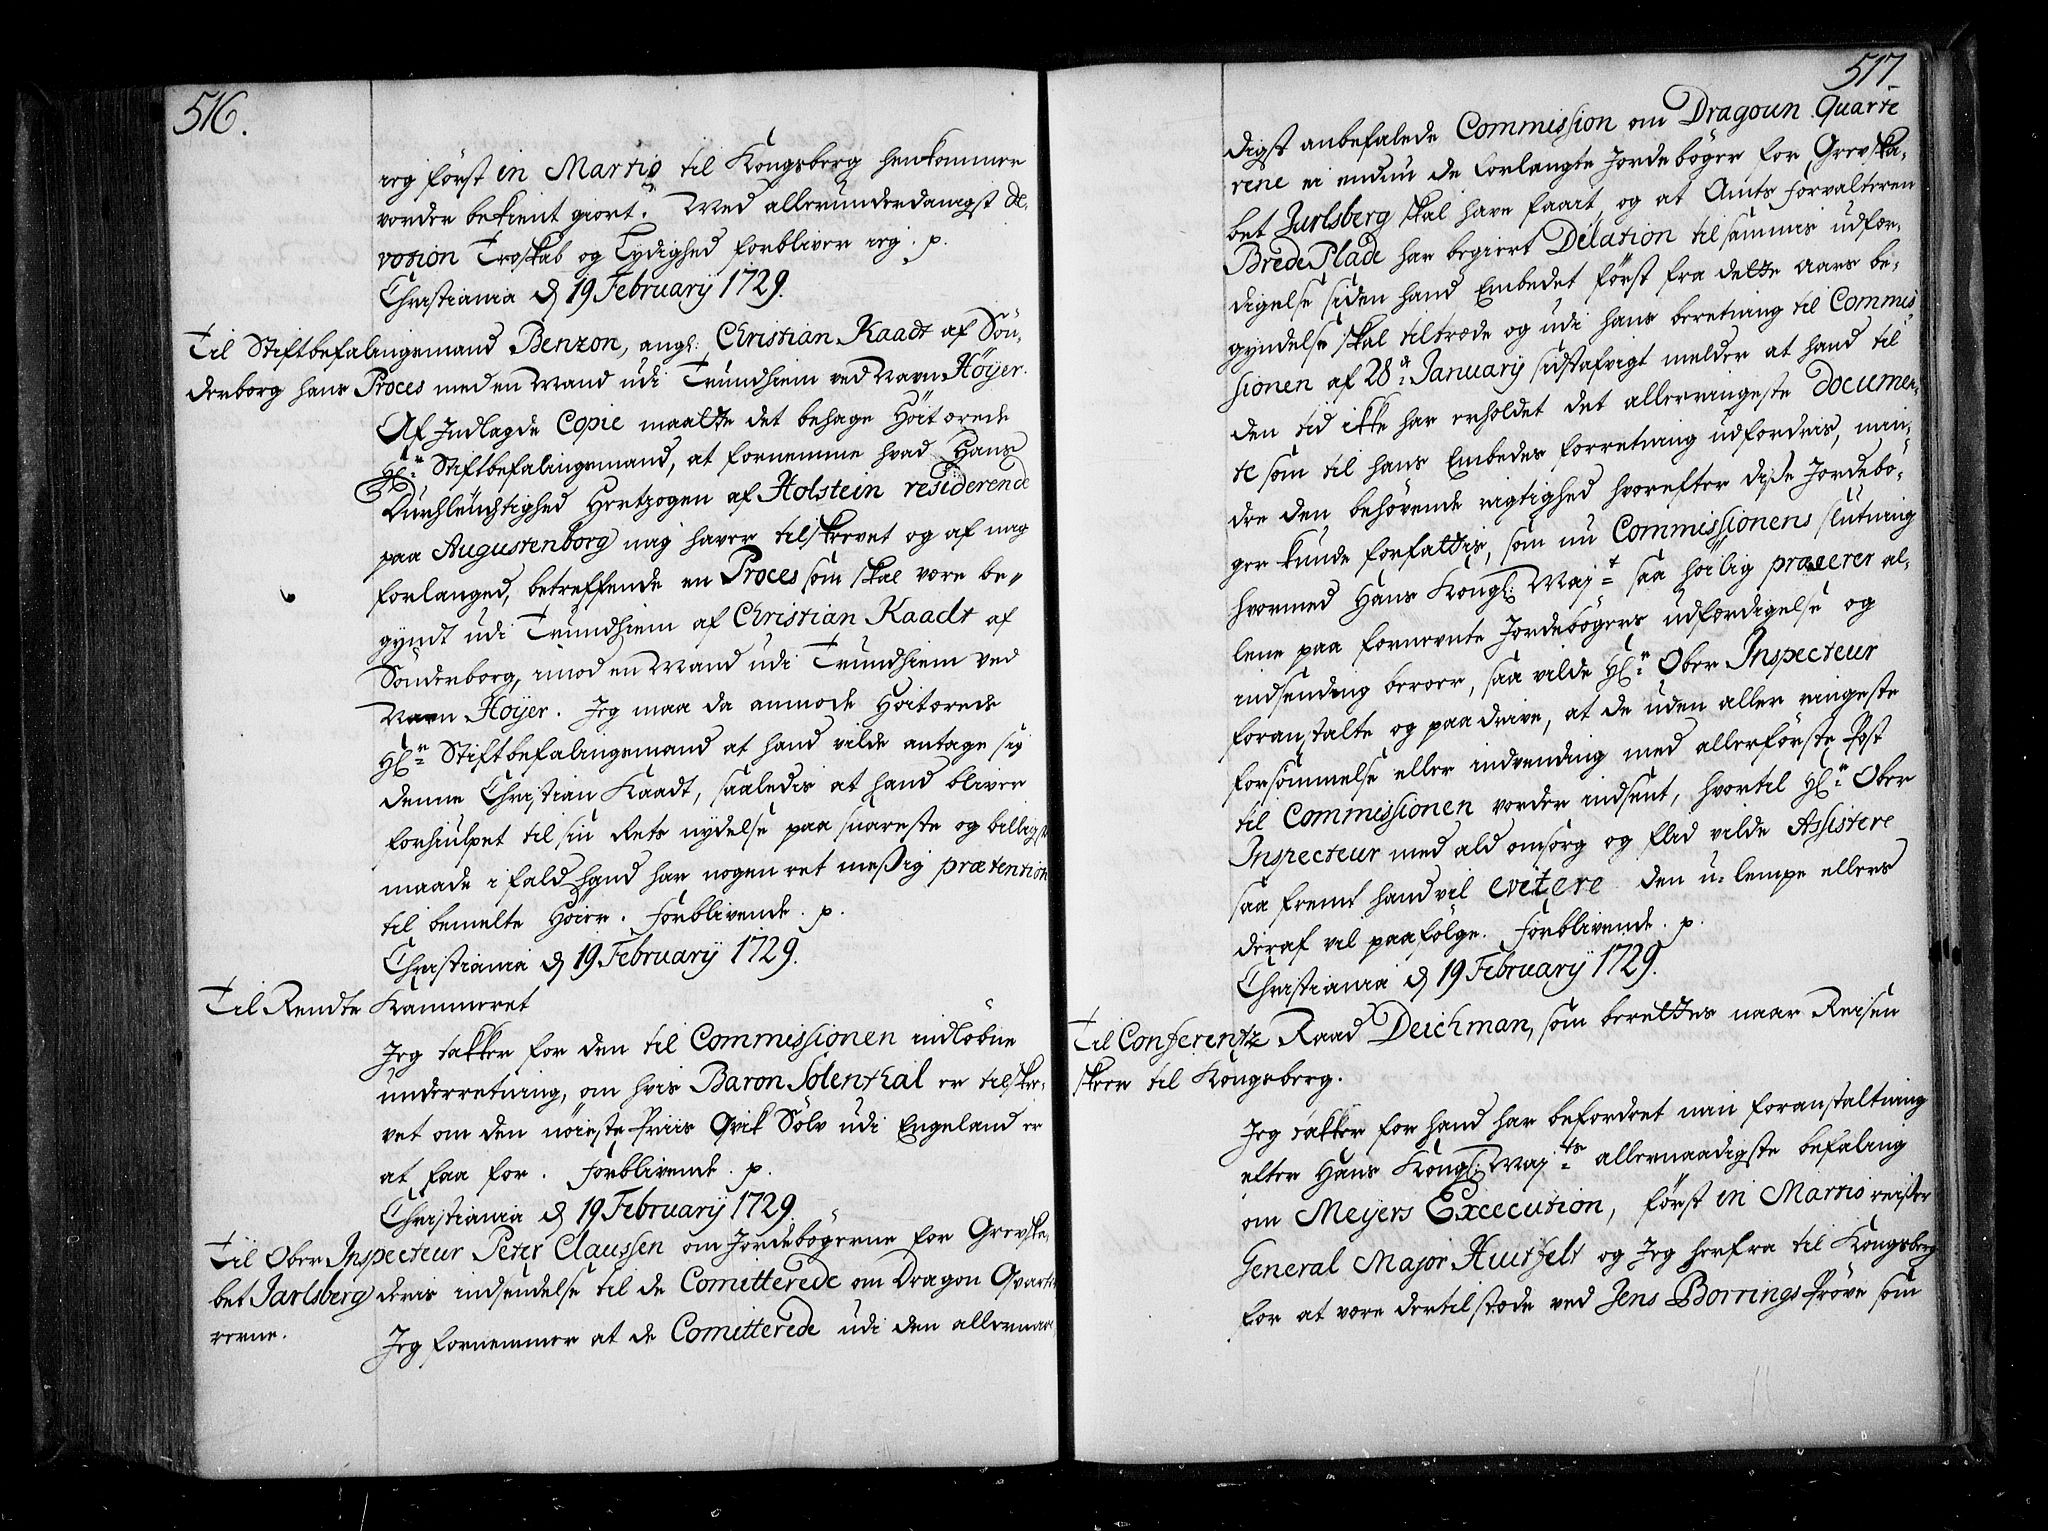 516.
ieg först in Martio til Kongsberg henkommer
vorder bekient giort. Med allerunderdanigst de-
votion Troskab og Lydighed forbliver ieg. p.
Christiania d 19 February 1729.
Til Stiftbefalingsmand Benzon, angl: Christian Kaadt af Sön-
derborg hans Proces med en Mand udi Trundhiem ved Navn Höyer.
Af Indlagde Copie maatte det behage Höitærede
Hl:r Stiftbefalingsmand, at fornemme hvad Hans
Durchleuchtighed Hertzogen af Holstein residerende
paa Augustenborg mig haver tilskrevet og af mig
forlanged, betreffende en Proces som skal være be-
gyndt udi Trundhiem af Christian Kaadt af
Sönderborg, imod en Mand udi Trundhiem ved
Navn Höyer. Jeg maa da anmode Höitærede
Hl:r Stiftbefalingsmand at hand vilde antage sig
denne Christian Kaadt, saaledis at hand bliver
forhiulpet til sin Rets nydelse paa snareste og billigste
maade i fald hand har nogen ret meßig prætention
til bemelte Höier. Forblivende. p.
Christiania d 19 February 1729.
Til Rendte Kammeret
Jeg takker for den til Commissionen indlöbne
underretning, om hvis Baron Sölenthal er tilskre-
vet om den nöieste Priis Qvik Sölv udi Engeland er
at faa for. Forblivende. p.
Christiania d 19 February 1729.
Til Ober Inspecteur Peter Claussen om Jordebögerne for Grevska-
bet Jarlsberg deris indsendelse til de Comitterede om Dragon Qvarte-
rerne.
Jeg fornemmer at de Comitterede udi den allernaa-
517.
digst anbefalede Commission om Dragoun Quarte
rene ei endnu de forlangte Jordeböger for Grevska-
bet Jarlsberg skal have faaet og at Amts Forvalteren
Brede Plade har begiert Dilation til sammis udfær-
digelse siden hand Embedet först fra dette Aars be-
gyndelse skal tiltræde og udi hans beretning til Commis-
sionen af 28:de January sidstafvigt melder at hand til
den tid ikke har erholdet det allerringeste documen-
te som til hans Embedes forretning udfordris, min-
dre den behövende rigtighed hvorefter diße Jordebö-
ger kunde forfattis, som nu Commissionens slutning
hvormed Hans Kongl: May:t saa höilig præserer al-
lene paa fornevnte Jordebögers udfærdigelse og
indsending beroer, saa vilde Hl:r Ober Inspecteur
foranstalte og paadrive, at de uden aller ringeste
forsömmelse eller indvending med allerförste Post
til Commissionen vorder indsent, hvortil Hl:r Ober
Inspecteur med ald omsorg og Flid vilde Assistere
saa fremt hand vil evitere den u-lempe ellers
deraf vil paafölge. Forblivende. p.
Christiania d 19 February 1729.
Til Conferentz Raad Deichman, som berettes naar Reisen
skeer til Kongsberg.
Jeg takker for hand har befordret min foranstaltning
efter Hans Kongl: May:ts allernaadigste befaling
om Meyers Excecution, först in Martio reiser
General Major Huitfelt og Jeg herfra til Kongsberg
for at være dertilstede ved Jens Borrings Pröve som